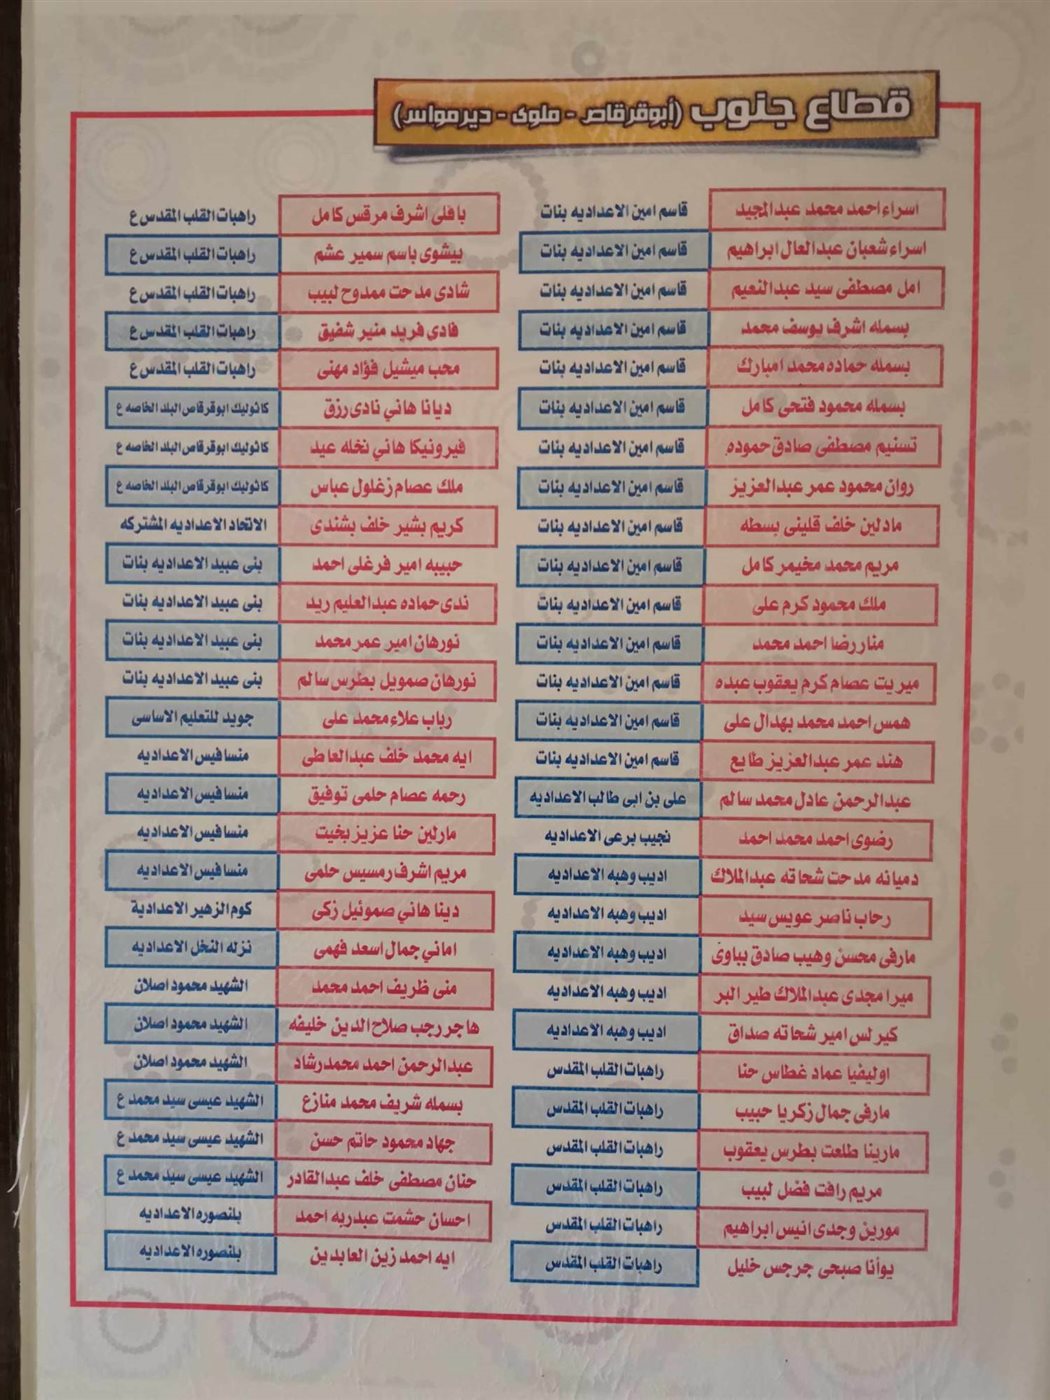 قطاع جنوب (أبوقرقاص - ملوى - ديرمواس)
اسراء احمد محمد عبدالمجيد قاسم امين الاعداديه بنات
اسراء شعبان عبدالعال ابراهيم قاسم امين الاعداديه بنات
امل مصطفى سيد عبدالنعيم قاسم امين الاعداديه بنات
بسمله اشرف يوسف محمد قاسم امين الاعداديه بنات
بسمله حماده محمد امبارك قاسم امين الاعداديه بنات
بسمله محمود فتحى كامل قاسم امين الاعداديه بنات
تسنيم مصطفى صادق حموده قاسم امين الاعداديه بنات
روان محمود عمر عبدالعزيز قاسم امين الاعداديه بنات
مادلين خلف قلينى بسطه قاسم امين الاعداديه بنات
مريم محمد مخيمر كامل قاسم امين الاعداديه بنات
ملك محمود كرم على قاسم امين الاعداديه بنات
منار رضا احمد محمد قاسم امين الاعداديه بنات
ميريت عصام كرم يعقوب عبده قاسم امين الاعداديه بنات
همس احمد محمد بهدال على قاسم امين الاعداديه بنات
هند عمر عبدالعزيز طايع قاسم امين الاعداديه بنات
عبدالرحمن عادل محمد سالم على بن ابى طالب الاعداديه
رضوى احمد محمد احمد نجيب برعى الاعداديه
دميانه مدحت شحاته عبدالملاك اديب وهبه الاعداديه
رحاب ناصر عويس سيد اديب وهبه الاعداديه
مارفى محسن وهيب صادق بباوى اديب وهبه الاعداديه
ميرا مجدى عبدالملاك طير البر اديب وهبه الاعداديه
كيرلس امير شحاته صداق اديب وهبه الاعداديه
اوليفيا عماد غطاس حنا راهبات القلب المقدس
مارفى جمال زكريا حبيب راهبات القلب المقدس
مارينا طلعت بطرس يعقوب راهبات القلب المقدس
مريم رافت فضل لبيب راهبات القلب المقدس
مورين وجدى انيس ابراهيم راهبات القلب المقدس
يوأنا صبحى جرجس خليل راهبات القلب المقدس
بافلى اشرف مرقس كامل راهبات القلب المقدس ع
بيشوى باسم سمير عشم راهبات القلب المقدس ع
شادى مدحت ممدوح لبيب راهبات القلب المقدس ع
فادى فريد منير شفيق راهبات القلب المقدس ع
محب ميشيل فؤاد مهنى راهبات القلب المقدس ع
ديانا هاني نادى رزق كاثوليك ابوقرقاص البلد الخاصه ع
فيرونيكا هاني نخله عيد كاثوليك ابوقرقاص البلد الخاصه ع
ملك عصام زغلول عباس كاثوليك ابوقرقاص البلد الخاصه ع
كريم بشير خلف بشندى الاتحاد الاعداديه المشتركه
حبيبه امير فرغلى احمد بنى عبيد الاعداديه بنات
ندى حماده عبدالعليم ريد بنى عبيد الاعداديه بنات
نورهان امير عمر محمد بنى عبيد الاعداديه بنات
نورهان صمويل بطرس سالم بنى عبيد الاعداديه بنات
رباب علاء محمد على جويد للتعليم الاساسى
ايه محمد خلف عبدالعاطى منسافيس الاعداديه
رحمه عصام حلمى توفيق منسافيس الاعداديه
مارلين حنا عزيز بخيت منسافيس الاعداديه
مريم اشرف رمسيس حلمى منسافيس الاعداديه
دينا هاني صموئيل زكى كوم الزهير الاعدادية
اماني جمال اسعد فهمى نزله النخل الاعداديه
منى ظريف احمد محمد الشهيد محمود اصلان
هاجر رجب صلاح الدين خليفه الشهيد محمود اصلان
عبدالرحمن احمد محمد رشاد الشهيد محمود اصلان
بسمله شريف محمد منازع الشهيد عيسى سيد محمد ع
جهاد محمود حاتم حسن الشهيد عيسى سيد محمد ع
حنان مصطفى خلف عبدالقادر الشهيد عيسى سيد محمد ع
احسان حشمت عبدربه احمد بلنصوره الاعداديه
ايه احمد زين العابدين بلنصوره الاعداديه